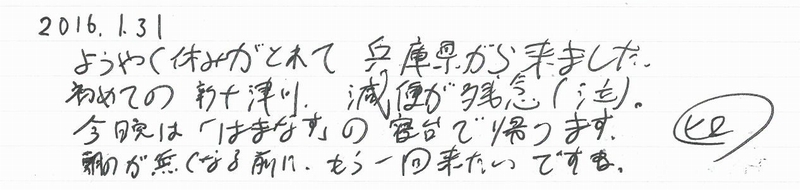 2016.1.31
ようやく休みがとれて 兵庫県から来ました.
初めての 新十津川. 減便が残念(泣)。
今晩は「はまなす」の 寝台で帰ります.
が無くなる前に、もう一回来たいですね。